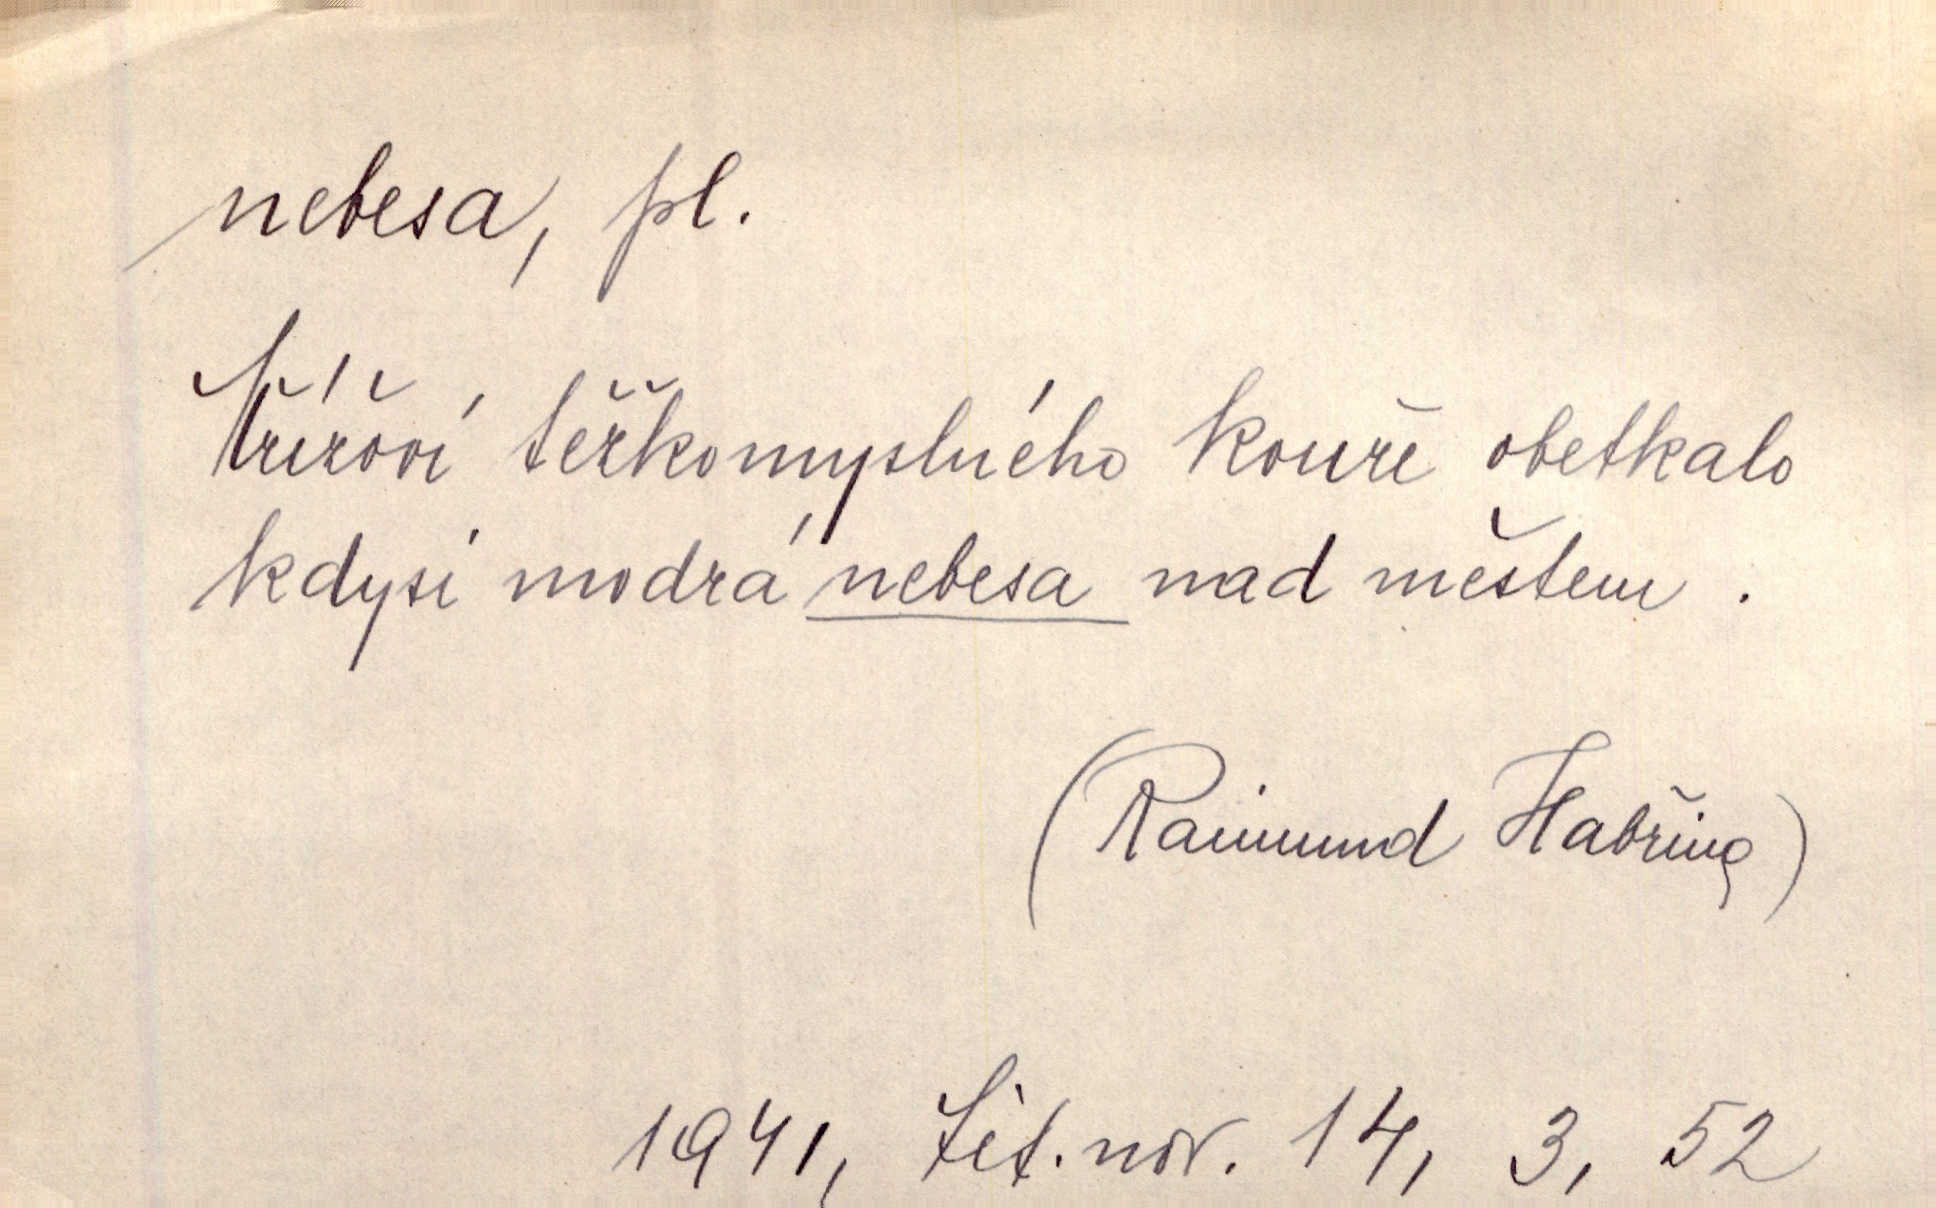 nebesa, pl.
Tříšoví těžkomyslného kouře obetkalo
kdysi modrá nebesa nad městem .
(Raimund Habřina)
1941, Lit. nov. 14, 3, 52